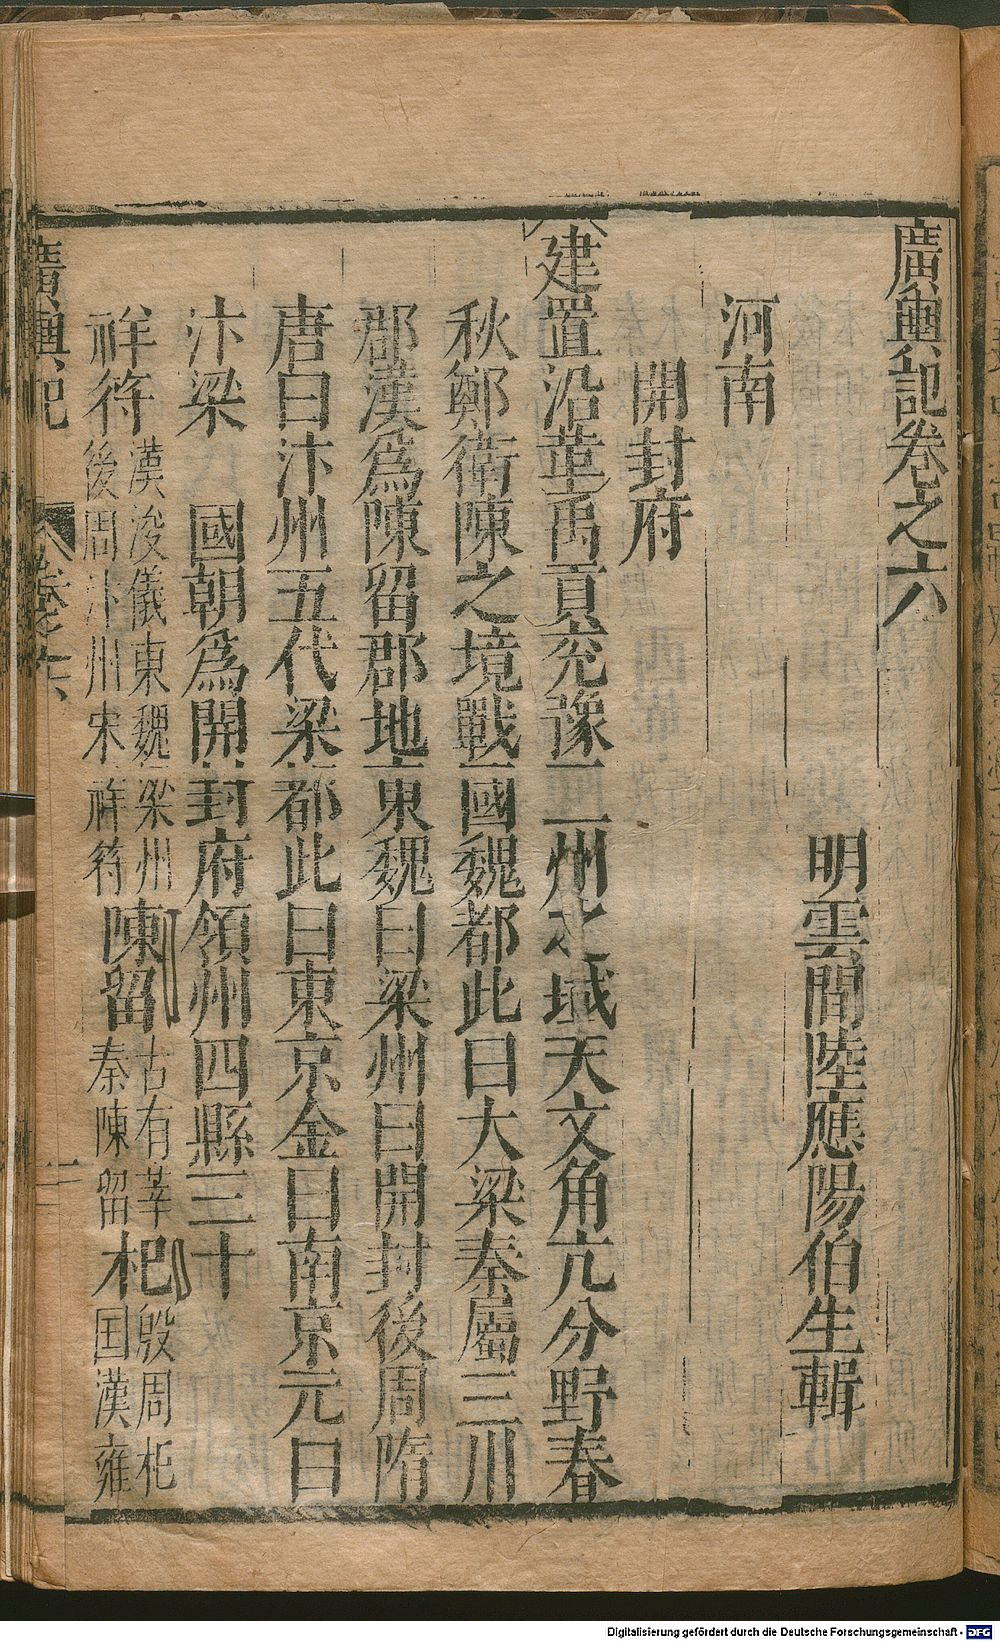 廣輿記卷之六
明雲間陸應陽伯生輯
河南
開封府
建置沿革禹貢兗豫二州之域天文角亢分野春
秋鄭衛陳之境戰國魏都此曰大梁秦屬三川
郡漢爲陳留郡地東魏曰梁州曰開封後周隋
唐曰汴州五代梁都此曰東京金曰南京元曰
汴梁 國朝爲開封府領州四縣三十
祥符 漢浚儀東魏梁州後周汴州宋祥符 陳留 古有莘秦陳留 杞 殷周杞国漢雍
廣輿記 卷之六 一
Digitalisierung gefördert durch die Deutsche Forschungsgemeinschaft - DFG